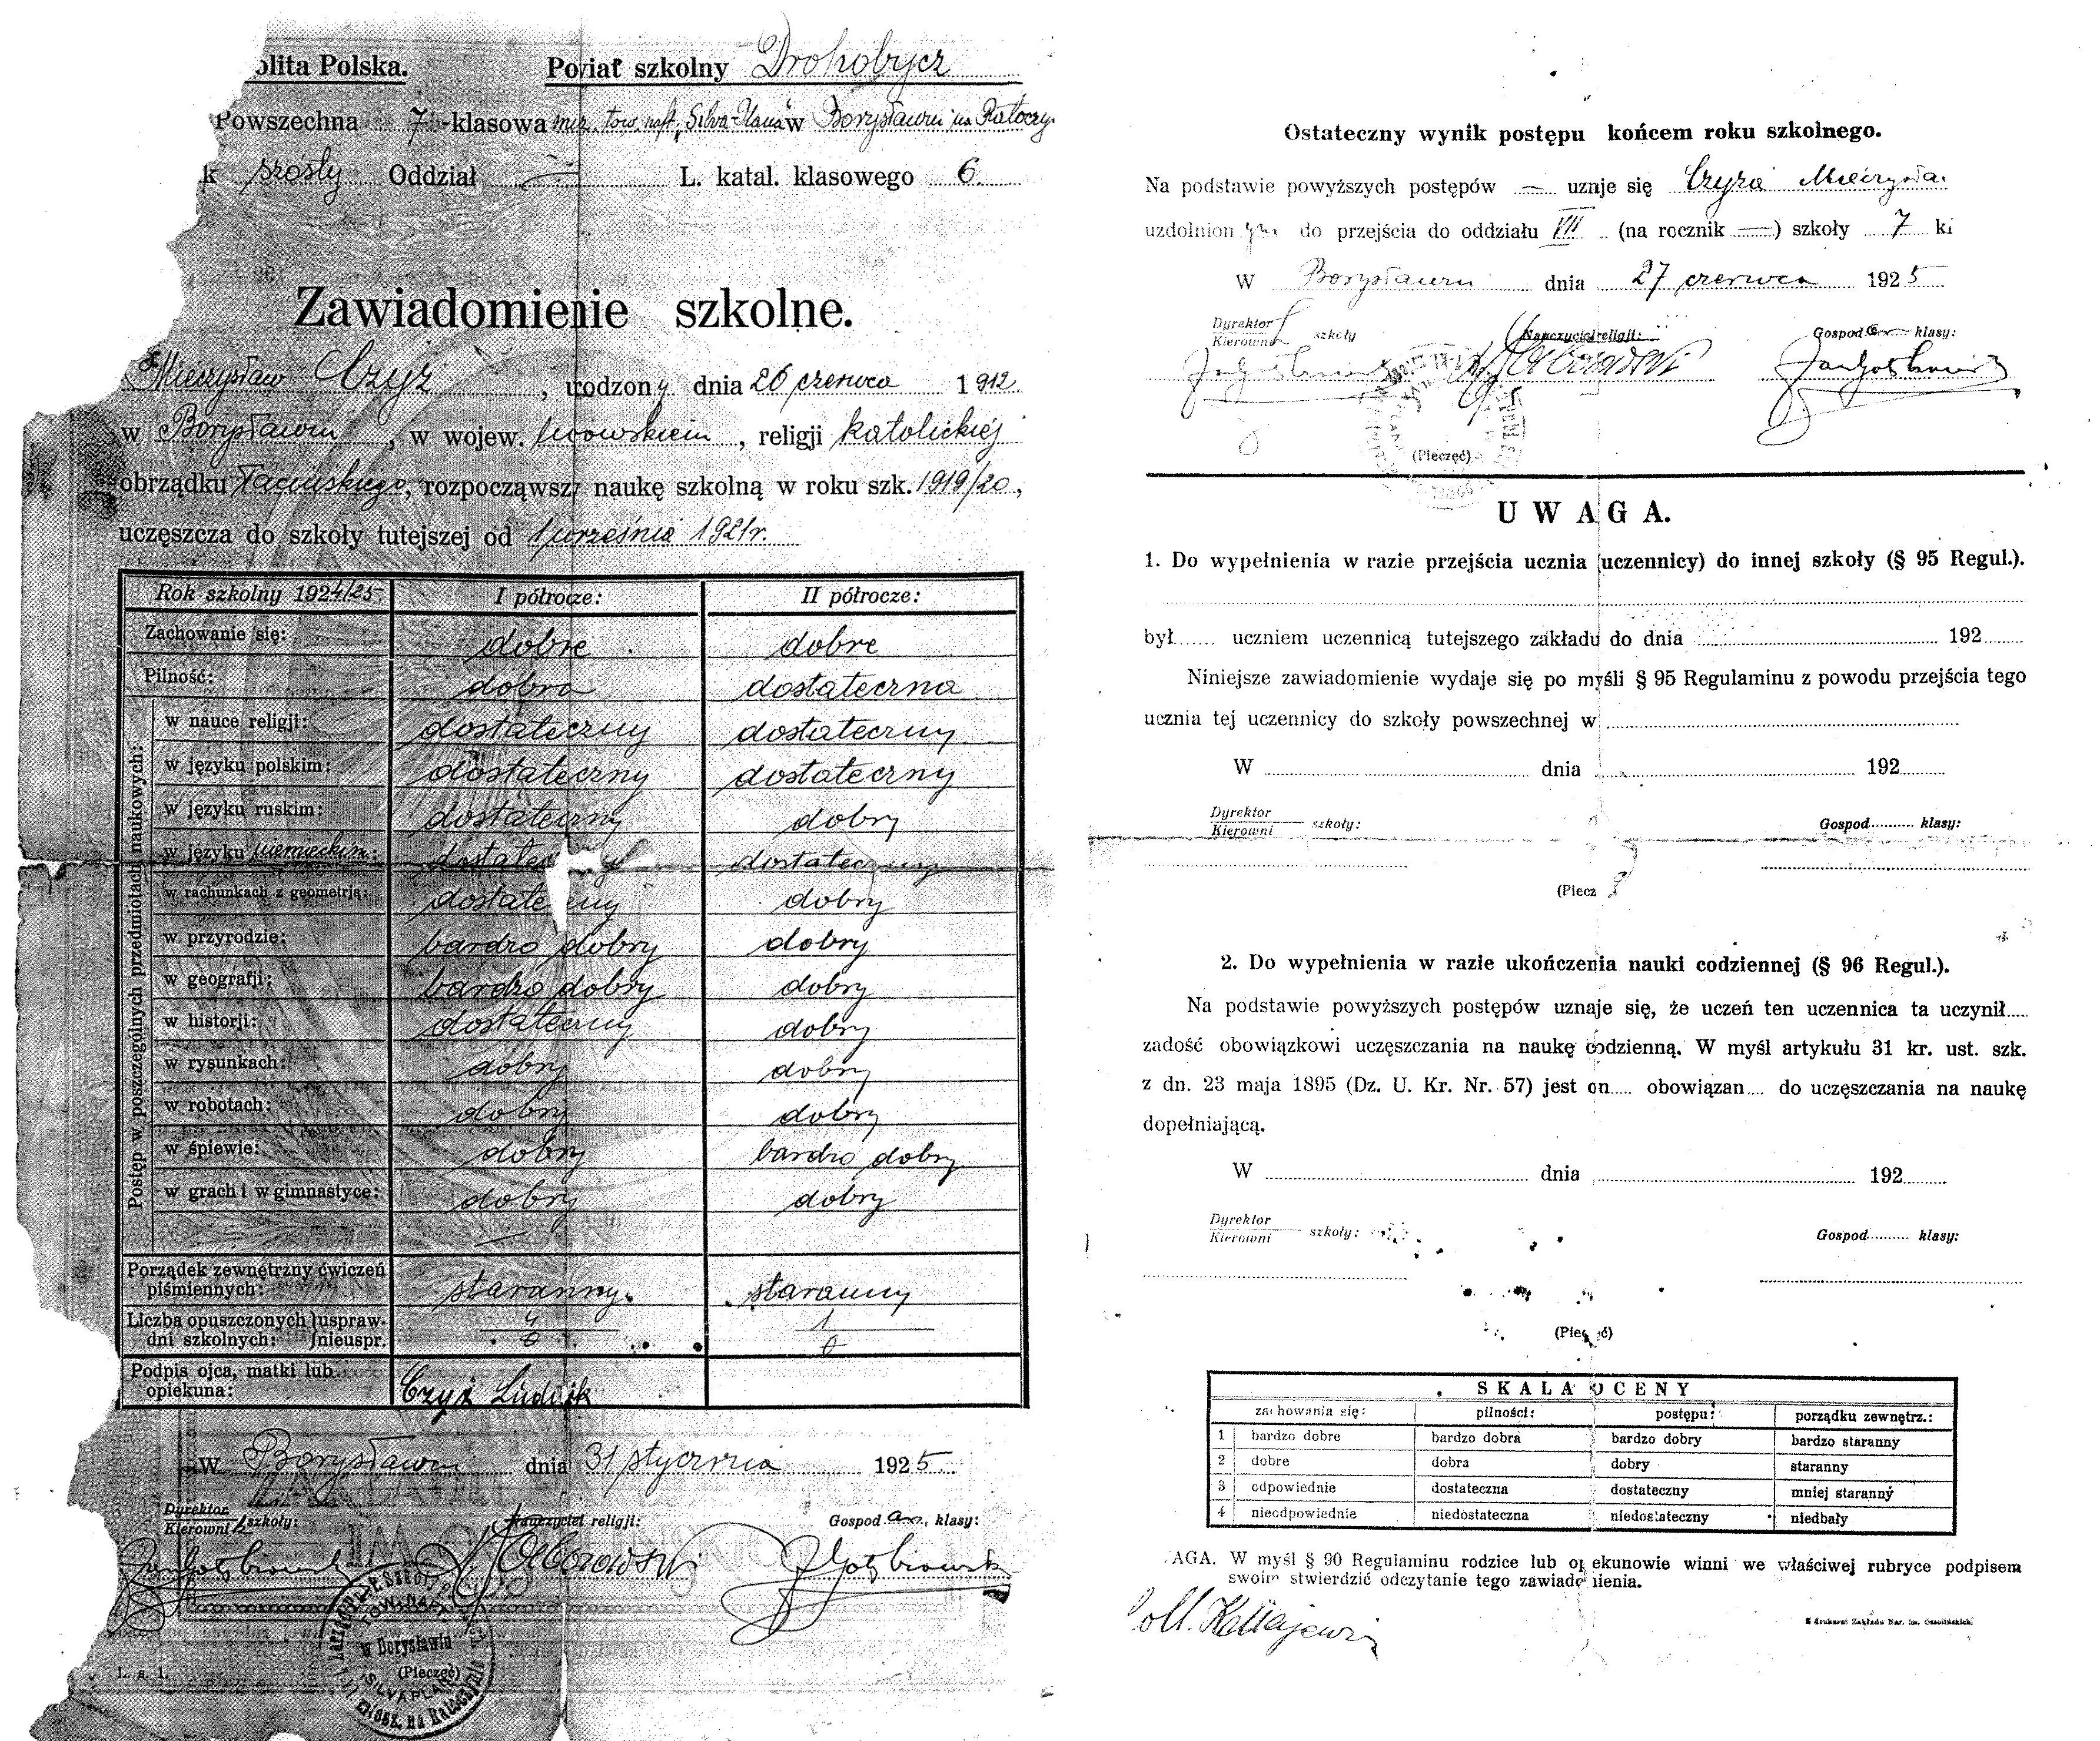 olita Polska. Powiat szkolny Drohobycz
Powszechna 7-klasowa mies. tow. naft. "Silva-Plana" w Borysławiu na Ratoczy
k szósty Oddział — L. katal. klasowego 6.
Zawiadomienie szkolne.
Mieczysław Czyż, urodzony dnia 26 czerwca 1912.
w Borysławiu, w wojew. lwowskiem, religji katolickiej
obrządku łacińskiego, rozpocząwszy naukę szkolną w roku szk. 1919/20,
uczęszcza do szkoły tutejszej od 1 września 1921r.
Rok szkolny 1924/25 I półrocze: II półrocze:
Zachowanie się: dobre dobre
Pilność: dobra dostateczna
Postęp w poszczególnych przedmiotach naukowych:
w nauce religji: dostateczny dostateczny
w języku polskim: dostateczny dostateczny
w języku ruskim: dostateczny dobry
w języku niemieckim: dostateczny dostateczny
w rachunkach z geometrją: dostateczny dobry
w przyrodzie: bardzo dobry dobry
w geografji: bardzo dobry dobry
w historji: dostateczny dobry
w rysunkach: dobry dobry
w robotach: dobry dobry
w śpiewie: dobry bardzo dobry
w grach i w gimnastyce: dobry dobry
—
Porządek zewnętrzny ćwiczeń piśmiennych: staranny. staranny
Liczba opuszczonych dni szkolnych: uspraw. 4 1
nieuspr. 0 0
Podpis ojca, matki lub opiekuna: Czyż Ludwik
W Borysławiu dnia 31 stycznia 1925.
Dyrektor
Kierownik szkoły: Nauczyciel religji: Gospodarz klasy:
TOW. NAFT.
w Borysławiu
(Pieczęć)
SILVA PLANA
L. s. 1.
Ostateczny wynik postępu końcem roku szkolnego.
Na podstawie powyższych postępów — uznje się Czyża Mieczysła
uzdolnionym do przejścia do oddziału VII (na rocznik —) szkoły 7 kl
W Borysławiu dnia 27 czerwca 1925.
Dyrektor
Kierownik szkoły Nauczyciel religji: Gospod klasy:
(Pieczęć)
UWAGA.
1. Do wypełnienia w razie przejścia ucznia (uczennicy) do innej szkoły (§ 95 Regul.).
był...... uczniem uczennicą tutejszego zakładu do dnia 192
Niniejsze zawiadomienie wydaje się po myśli § 95 Regulaminu z powodu przejścia tego
ucznia tej uczennicy do szkoły powszechnej w
W dnia 192
Dyrektor
Kierowni szkoły: Gospod klasy:
(Piecz
2. Do wypełnienia w razie ukończenia nauki codziennej (§ 96 Regul.).
Na podstawie powyższych postępów uznaje się, że uczeń ten uczennica ta uczynił.....
zadość obowiązkowi uczęszczania na naukę codzienną. W myśl artykułu 31 kr. ust. szk.
z dn. 23 maja 1895 (Dz. U. Kr. Nr. 57) jest on..... obowiązan.... do uczęszczania na naukę
dopełniającą.
W dnia 192
Dyrektor
Kierowni szkoły: Gospod klasy:
(Pieczęć)
SKALA OCENY
zachowania się: pilności: postępu: porządku zewnętrz.:
1 bardzo dobre bardzo dobra bardzo dobry bardzo staranny
2 dobre dobra dobry staranny
3 odpowiednie dostateczna dostateczny mniej staranny
4 nieodpowiednie niedostateczna niedostateczny niedbały
AGA. W myśl § 90 Regulaminu rodzice lub opiekunowie winni we właściwej rubryce podpisem
swoim stwierdzić odczytanie tego zawiadomienia.
Z drukarni Zakładu Nar. im. Ossolińskich.